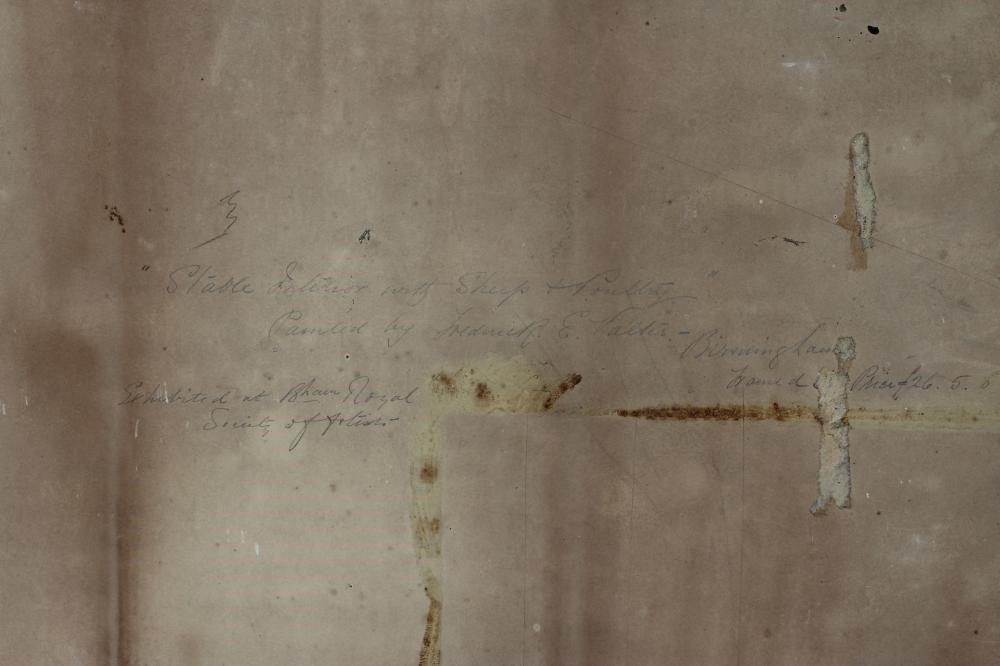 "Stable Interior with Sheep & Poultry"
Painted by Frederick E. Valter -
Birmingham
Framed Price £26. 5. 0
Exhibited at Bham Royal
Society of Artists